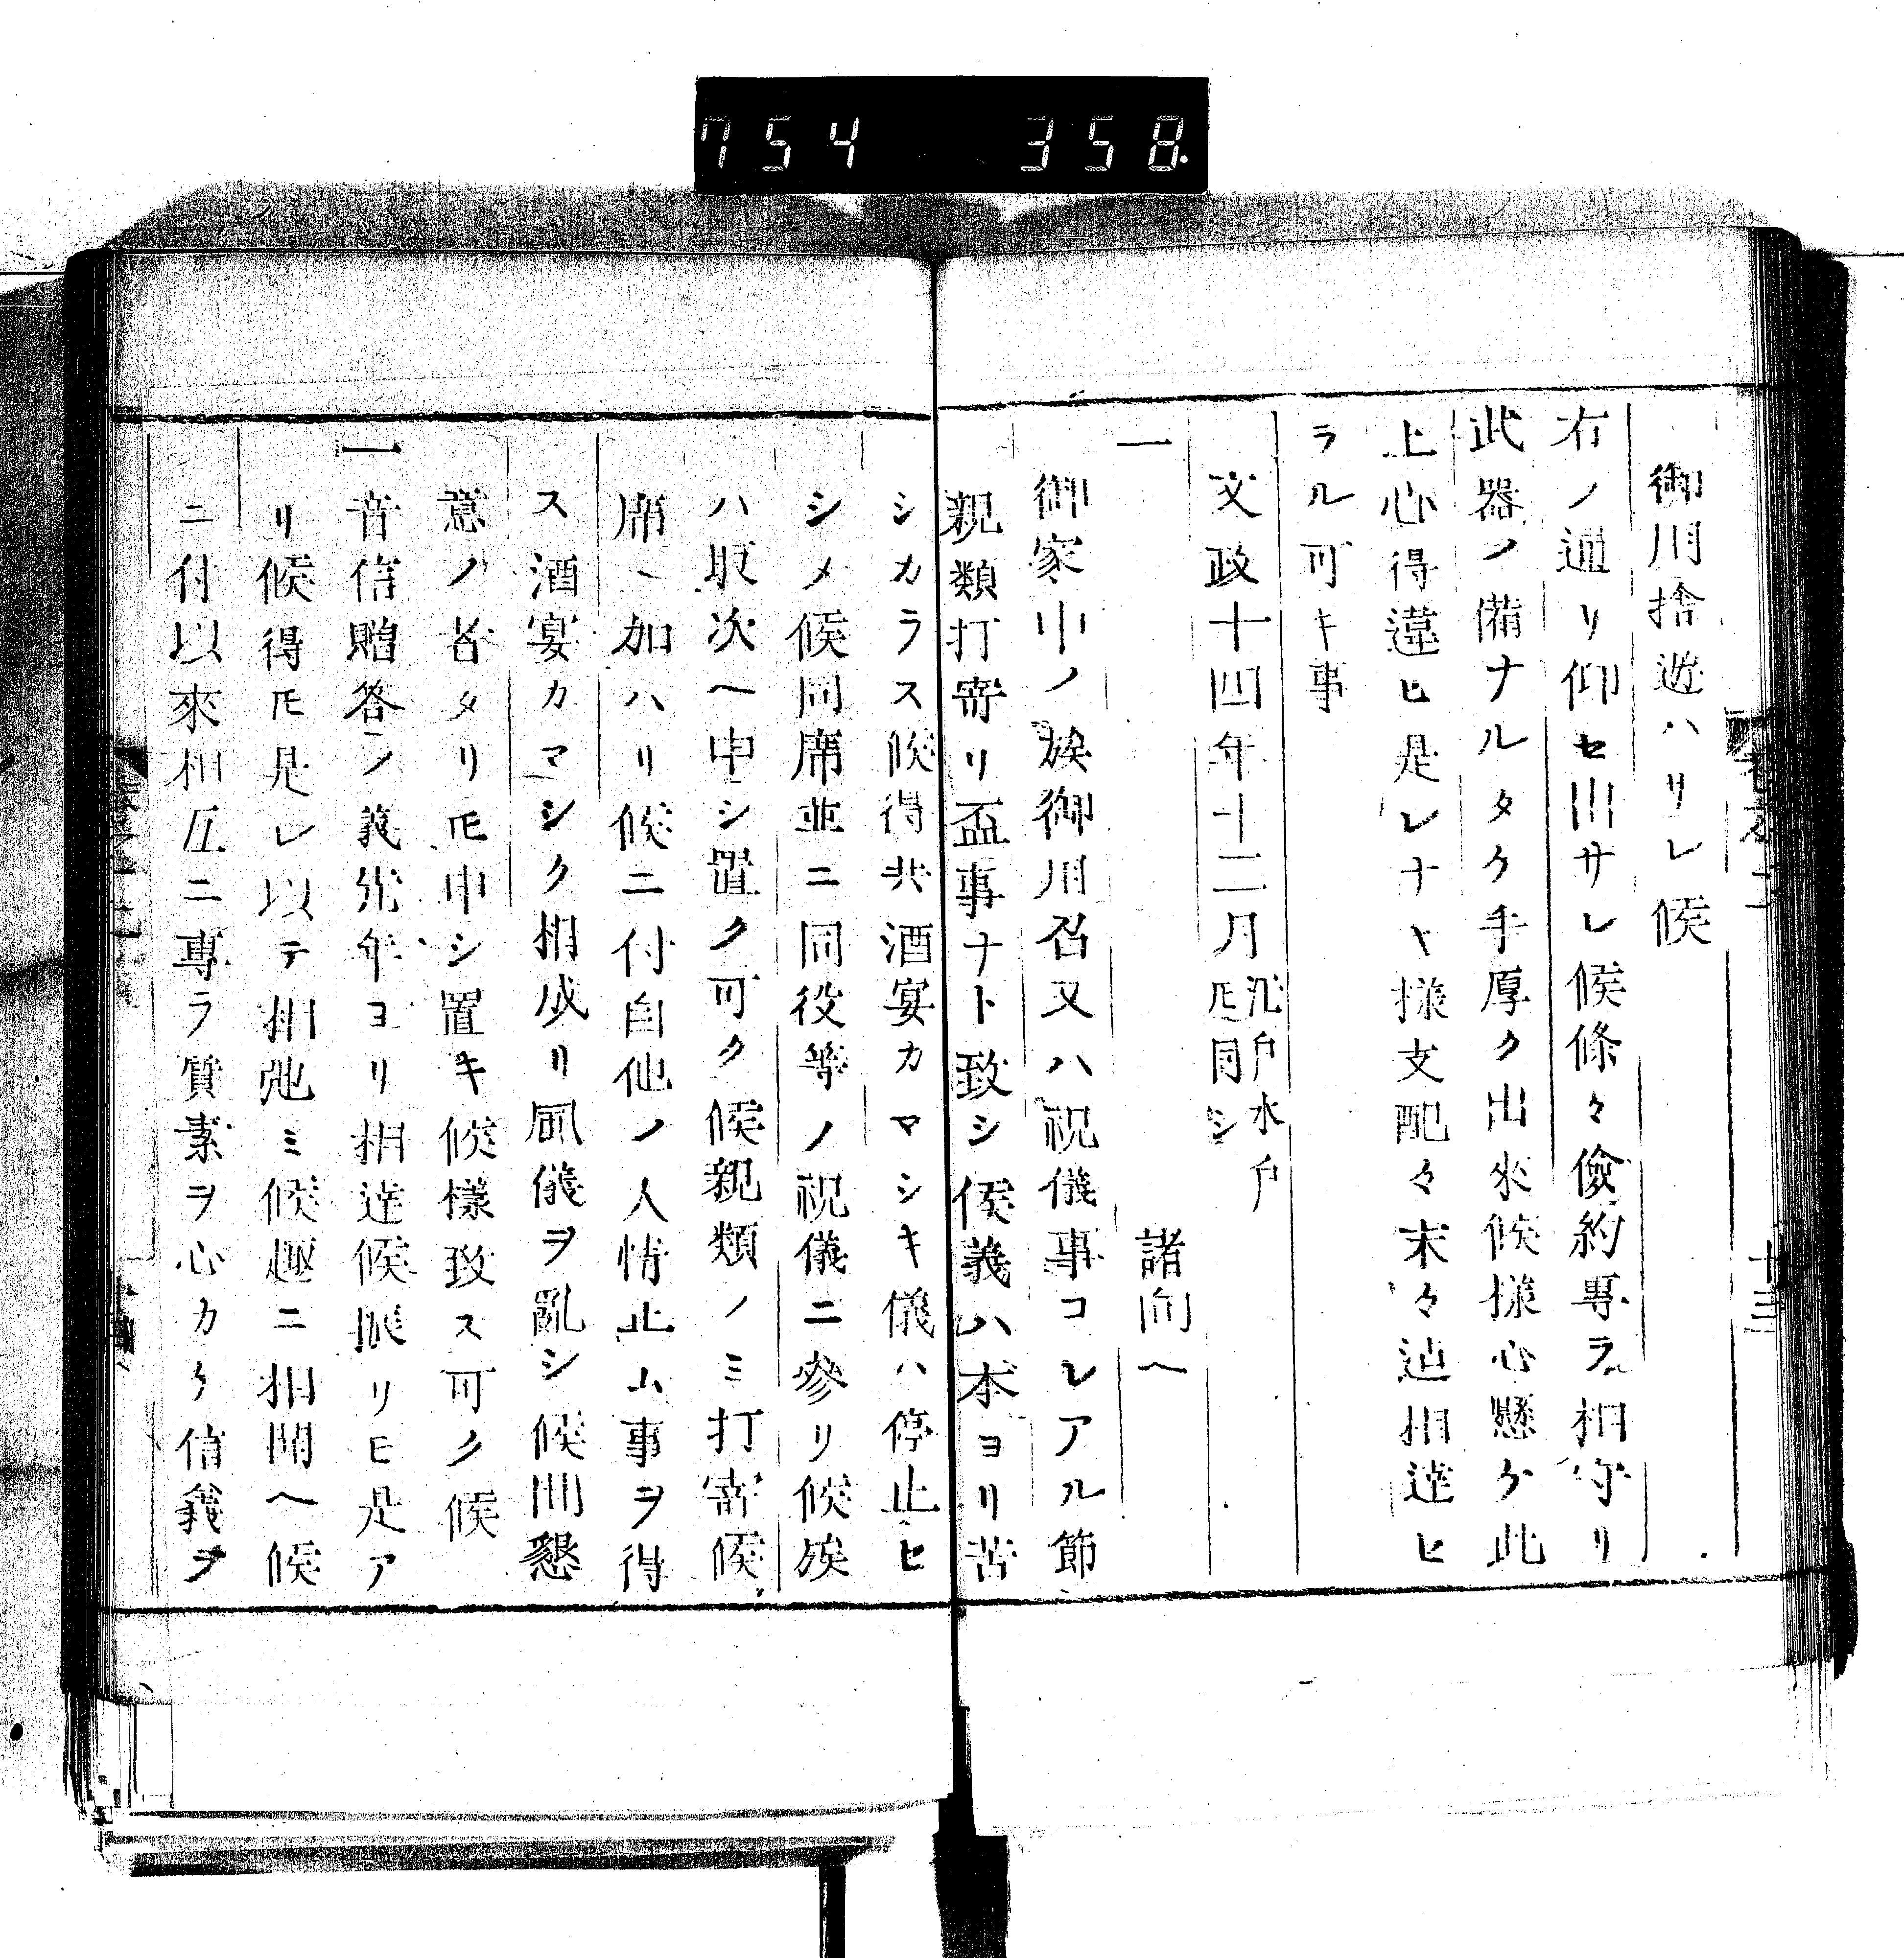 754 358.
御用捨遊ハサレ候
右ノ通リ仰セ出サレ候條々儉約專ラ相守リ
武器ノ備ナルタケ手厚ク出來候樣心懸ケ此
上心得違ヒ是レナキ樣支配々末々迠相達ヒ
ラル可キ事
文政十四年十二月
江戶水戶
𪜈同シ
一
諸向ヘ
御家中ノ族御用召又ハ祝儀事コレアル節
親類打寄リ盃事ナト致シ候義ハ本ヨリ苦
シカラス候得共酒宴カマシキ儀ハ停止ヒ
シメ候同席並ニ同役等ノ祝儀ニ參リ候族
ハ取次ヘ申シ置ク可ク候親類ノミ打寄候
席ヘ加ハリ候ニ付自他ノ人情止ム事ヲ得
ス酒宴カマシク相成リ風儀ヲ亂シ候間懇
意ノ者タリ𪜈申シ置キ候樣致ス可ク候
一音信贈答ノ義先年ヨリ相達候振リモ是ア
リ候得𪜈是レ以テ相弛ミ候趣ニ相聞ヘ候
ニ付以來相互ニ專ラ質素ヲ心カケ信義ヲ
十三